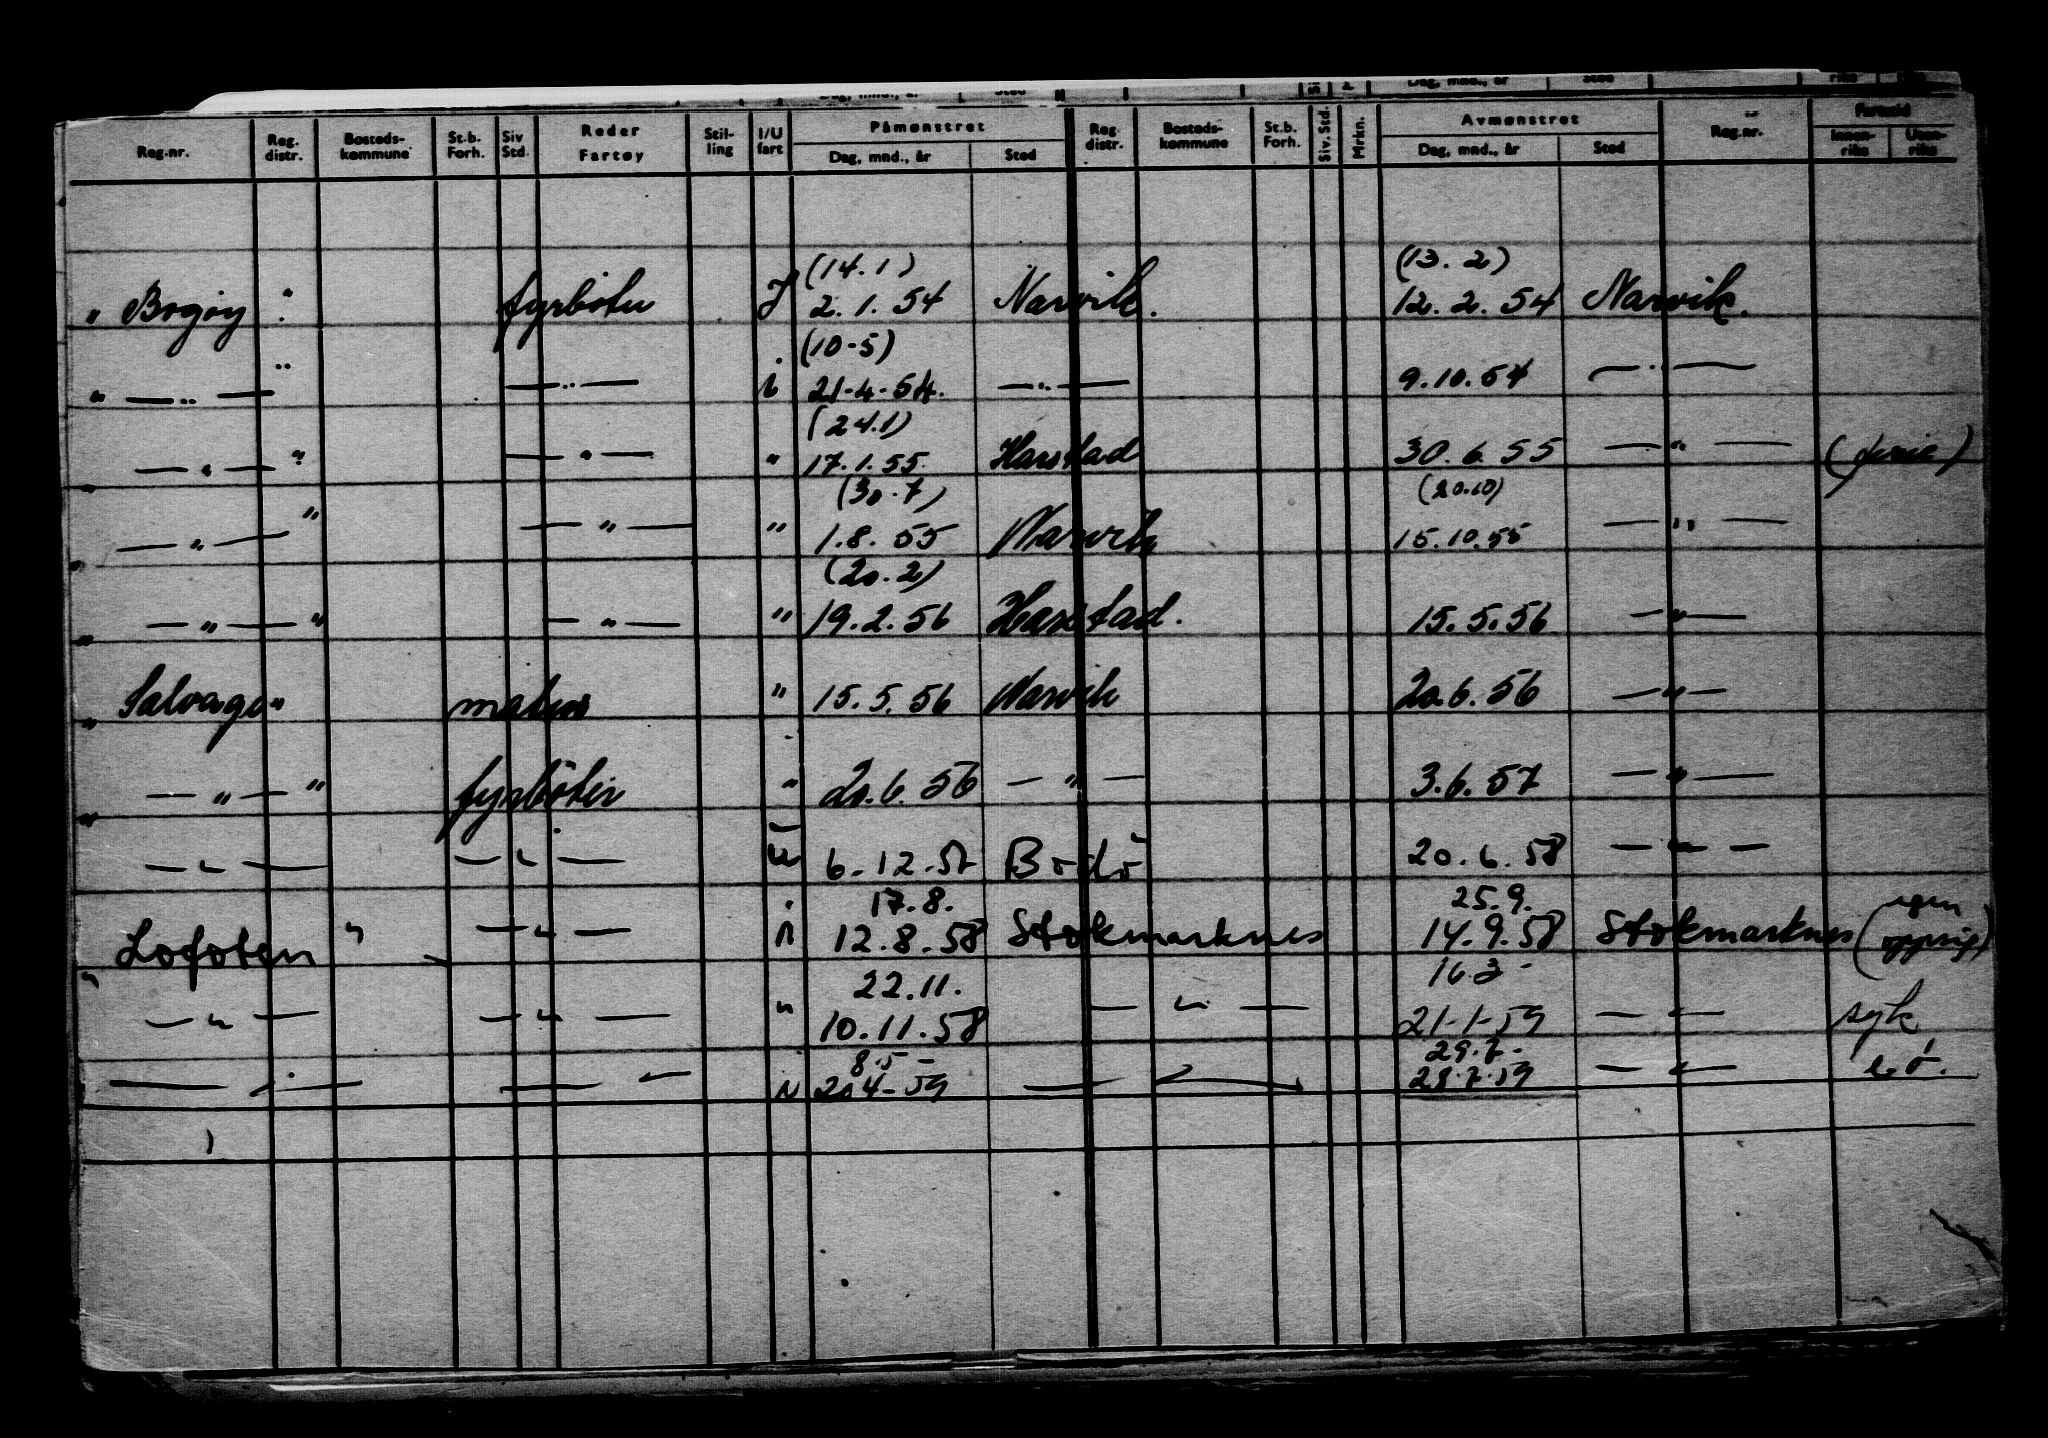 Dag, mnd., år Sted Dag, mnd., år Sted
Reg.nr. Reg. distr. Bosteds- kommune St.b. Forh. Siv Std. Reder Fartøy Stil- ling I/U fart Påmønstret Dag, mnd., år Sted Reg. distr. Bosteds- kommune St.b. Forh. Siv. Std. Mrkn. Avmønstret Dag, mnd., år Sted Reg.nr. Innen- riks Uten- riks
(14.1) (13.2)
" Bogøy " fyrbøter I 2.1.54 Narvik. 12.2.54 Narvik.
(10-5)
" — " — " — " — i 21-4-54. — " — 9.10.54 — " —
(24.1)
" — " — " — " — " 17.1.55. Harstad 30.6.55 — " —
(30.7) (20.10)
" — " — " — " — " 1.8.55 Narvik 15.10.55 — " —
(20.2)
" — " — " — " — " 19.2.56 Harstad. 15.5.56 — " —
" Salvager " matros " 15.5.56 Narvik 20.6.56 — " —
" — " — " fyrbøter " 20.6.56 — " — 3.6.57 — " —
— " — — " — " 6.12.57 Bodö 20.6.58 — " —
17.8. 25.9.
" Lofoten " — " — " 12.8.58 Stokmarknes 14.9.58 Stokmarknes (egen oppsig)
22.11. 16.3-
— " — — " — " 10.11.58 — " — 21-1-59 — " — syk
8.5- 29.7-
— " — — " — " 20.4-59 — " — 28.7.59 — " — e ö.